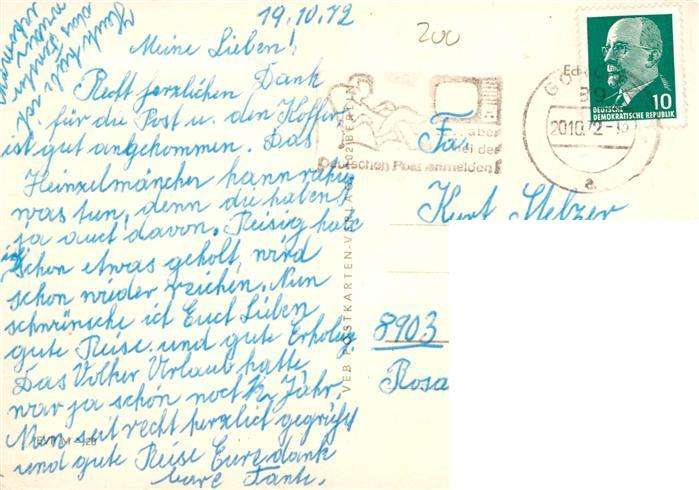 19.10.72
200
Meine Lieben!
Recht herzlichen Dank
für die Post u. den Koffer
ist gut angekommen. Das
Heinzelmänchen kann ruhig
was tun, denn du haben
ja auch davon. Reisig habe
ich schon etwas geholt, wird
schon wieder reichen. Nun
schwünsche ich Euch Lieben
gute Reise und gute Erholug
Das Volker Urlaub hatte
war ja schön noch ½ Jahr
Nun seit recht herzlich gegrüßt
und gute Reise Eure dank
bare Tante.
VEB POSTKARTEN-VERLAG
402 BERLIN
aber
bei der
Deutschen Post anmelden
20.10.72
a
10
DEUTSCHE
DEMOKRATISCHE REPUBLIK
Fa.
Kurt Stelzer
8903
Rosa